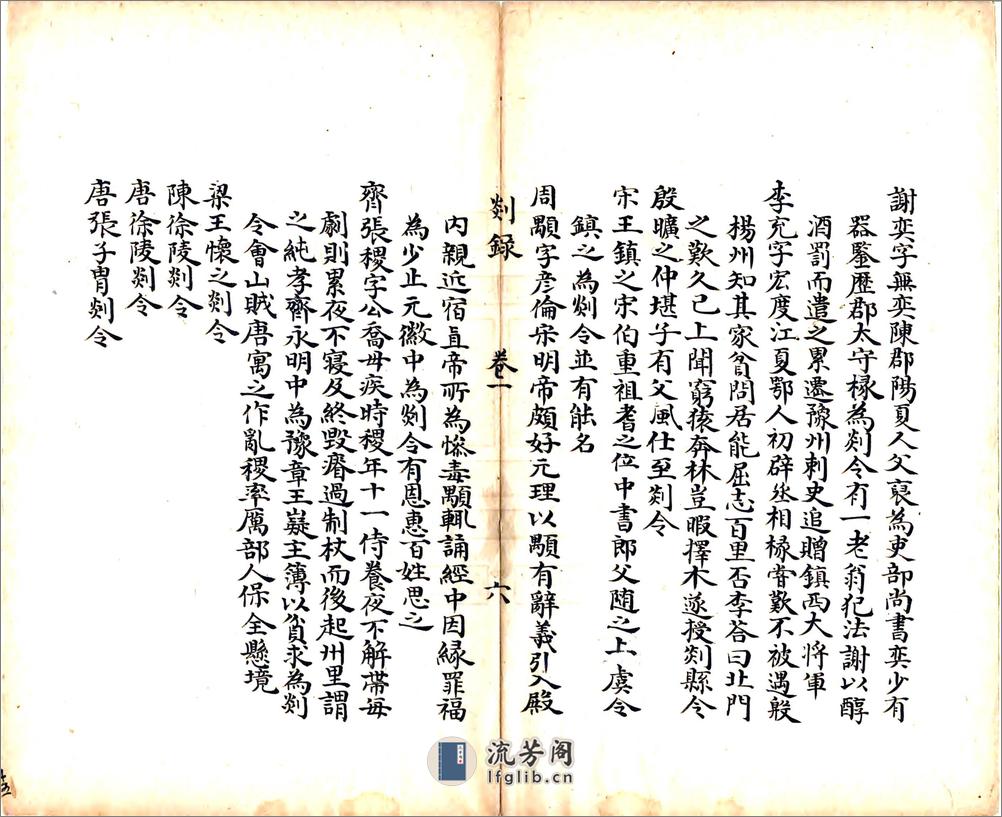 謝奕字無奕陳郡陽夏人父裒為吏部尚書奕少有
器鑒歷郡太守椽為剡令有一老翁犯法謝以醇
酒罰而遣之累遷豫州刺史追贈鎮西大將軍
李充字宏度江夏鄂人初辟丞相椽甞歎不被遇殷
楊州知其家貧問居能屈志百里否李荅曰北門
之歎久已上聞窮猿奔林豈暇擇木遂授剡縣令
殷曠之仲堪子有父風仕至剡令
宋王鎮之宋伯重祖耆之位中書郎父随之上虞令
鎮之為剡令並有能名
周顒字彦倫宋明帝頗好元理以顒有辭義引入殿
剡録 卷一 六
内親近宿直帝所為慘毒顒輒誦經中因緣罪福
為少止元徽中為剡令有恩惠百姓思之
齊張稷字公喬母疾時稷年十一侍養夜不解帶每
劇則累夜不寢及終毀瘠過制杖而後起州里謂
之純孝齊永明中為豫章王嶷主簿以貧求為剡
令會山賊唐寓之作亂稷率厲部人保全懸境
梁王懷之剡令
陳徐陵剡令
唐徐陵剡令
唐張子胄剡令
十五
流芳阁
lfglib.cn